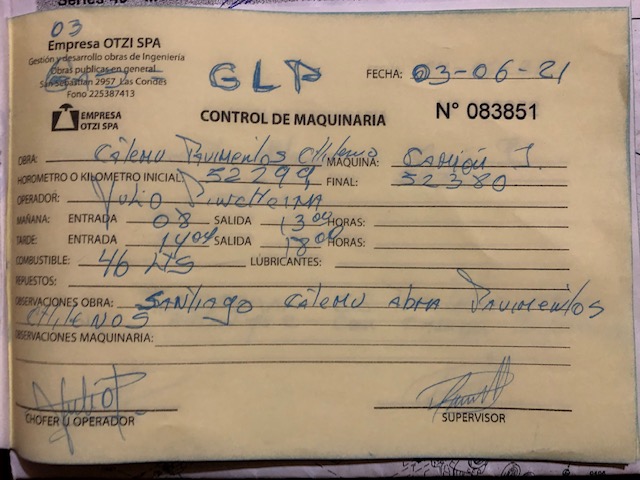 03
Empresa OTZI SPA
Gestión y desarrollo obras de Ingeniería
Obras publicas en general
2957 Las Condes
Fono 225387413
GLP
FECHA: 03-06-21
EMPRESA
OTZI SPA
CONTROL DE MAQUINARIA
N° 083851
OBRA: Catemu Pavimentos Chilenos MAQUINA: Camión J
HOROMETRO O KILOMETRO INICIAL: FINAL: 52380
OPERADOR: Julio
MAÑANA: ENTRADA 08 SALIDA 1300 HORAS:
TARDE: ENTRADA 1400 SALIDA 1800 HORAS:
COMBUSTIBLE: 46 Lts LUBRICANTES:
REPUESTOS:
OBSERVACIONES OBRA: SANTIAGO Catemu Abra Pavimentos
CHILENOS
OBSERVACIONES MAQUINARIA:
CHOFER U OPERADOR
SUPERVISOR